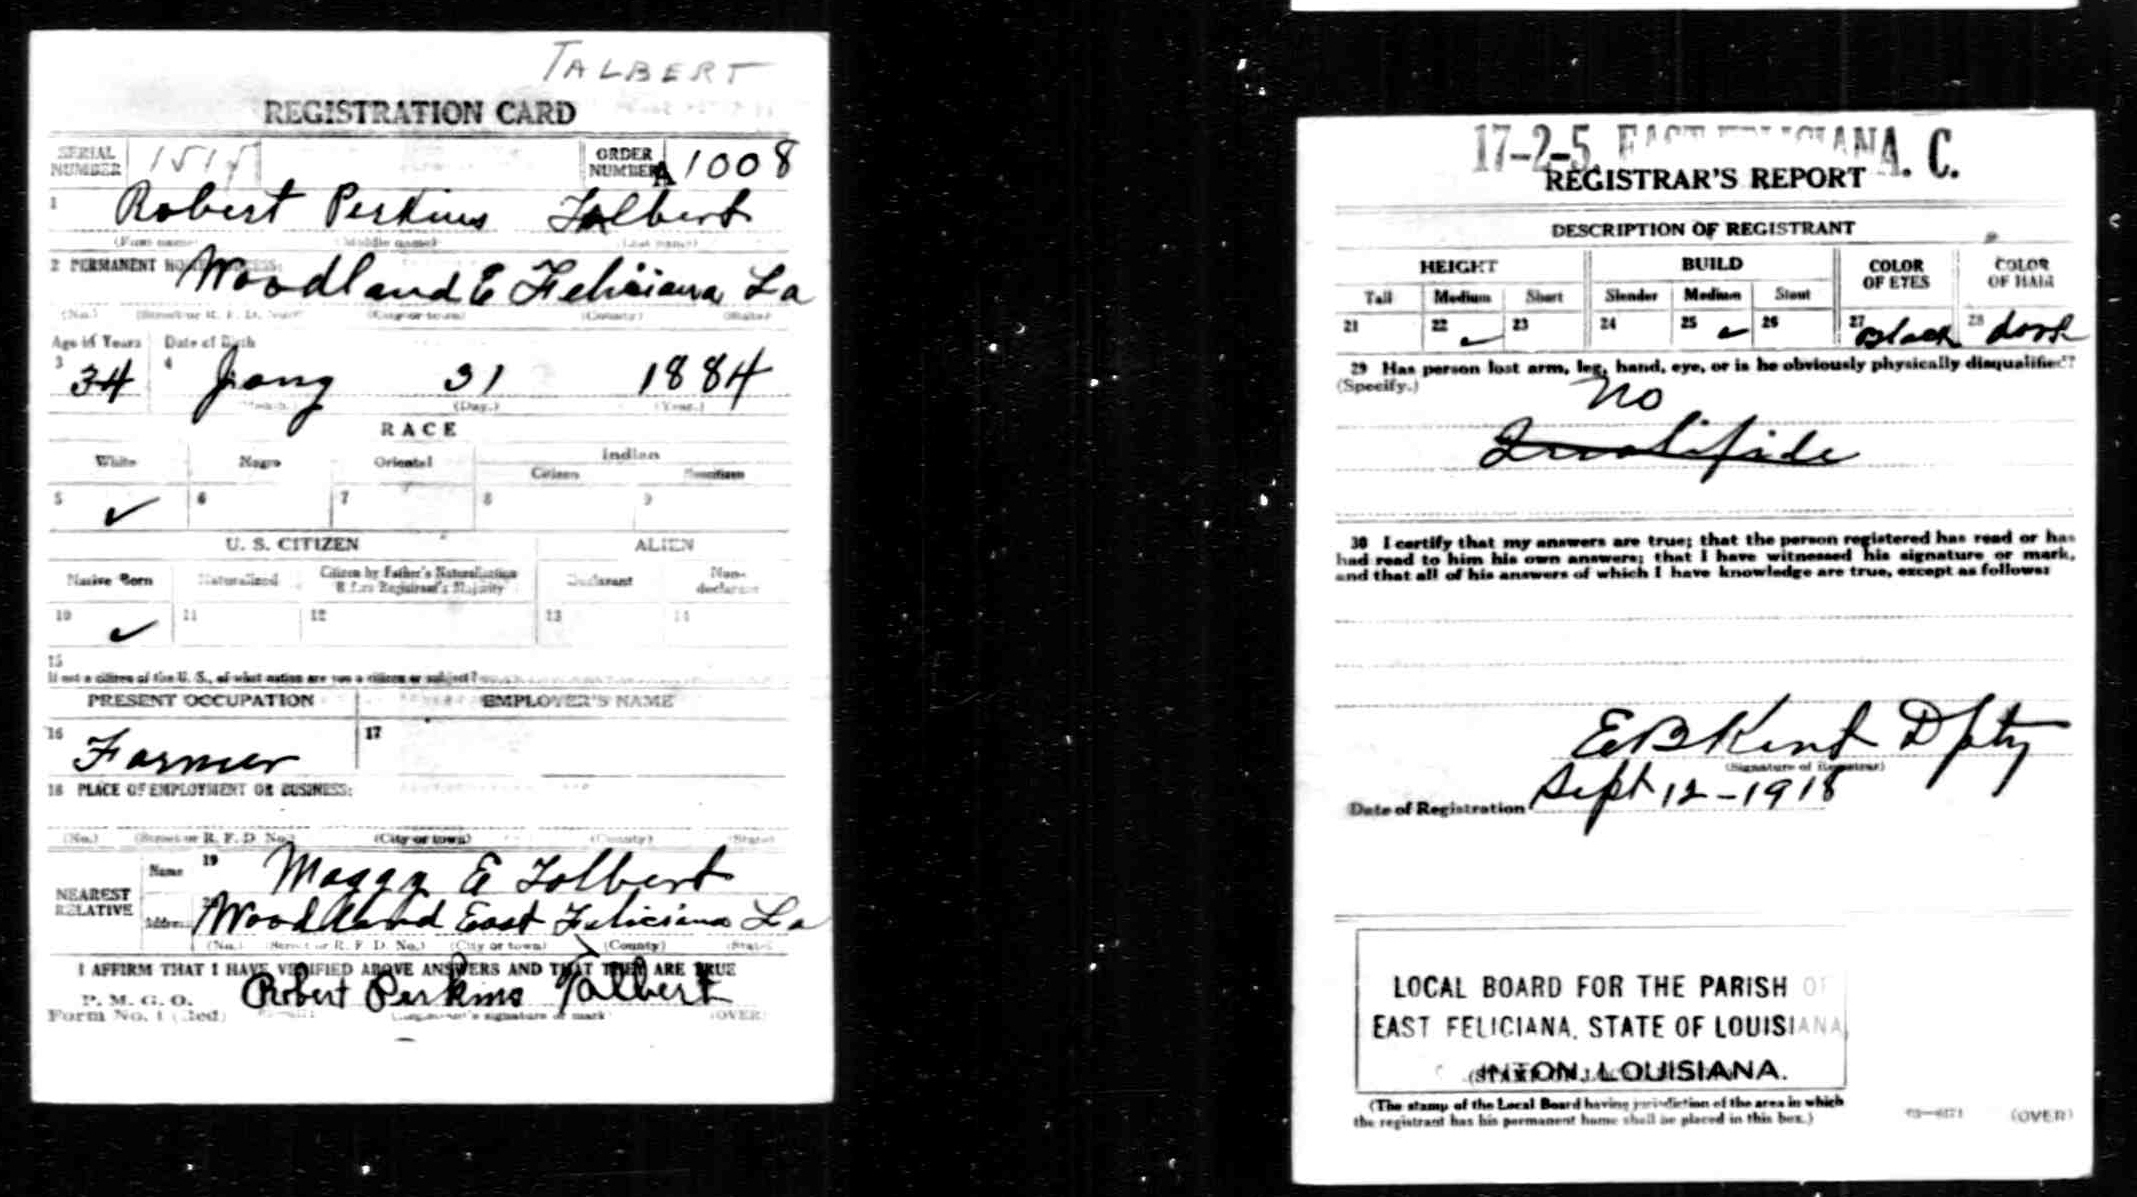 TALBERT
REGISTRATION CARD
SERIAL NUMBER 1515 ORDER NUMBER A 1008
1 Robert Perkins Talbert
(First name) (Middle name) (Last name)
2 PERMANENT HOME ADDRESS:
Woodland E Feliciana La
(No.) (Street or R. F. D. No.) (City or town) (County) (State)
Age in Years Date of Birth
3 34 4 Jany 31 1884
(Month.) (Day.) (Year.)
RACE
White Negro Oriental Indian
Citizen Noncitizen
5 ✓ 6 7 8 9
U. S. CITIZEN ALIEN
Native Born Naturalized Citizen by Father's Naturalization Before Registrant's Majority Declarant Non-declarant
10 ✓ 11 12 13 14
15
If not a citizen of the U. S., of what nation are you a citizen or subject?
PRESENT OCCUPATION EMPLOYER'S NAME
16 Farmer 17
18 PLACE OF EMPLOYMENT OR BUSINESS:
(No.) (Street or R. F. D. No.) (City or town) (County) (State)
NEAREST RELATIVE Name 19 Maggy E Tolbert
Address 20 Woodland East Feliciana La
(No.) (Street or R. F. D. No.) (City or town) (County) (State)
I AFFIRM THAT I HAVE VERIFIED ABOVE ANSWERS AND THAT THEY ARE TRUE
P. M. G. O.
Form No. 1 (Red) Robert Perkins Talbert
(Registrant's signature or mark) (OVER)
17-2-5. EAST FELICIANA. C.
REGISTRAR'S REPORT
DESCRIPTION OF REGISTRANT
HEIGHT BUILD COLOR OF EYES COLOR OF HAIR
Tall Medium Short Slender Medium Stout
21 22 ✓ 23 24 25 ✓ 26 27 Black 28 dark
29 Has person lost arm, leg, hand, eye, or is he obviously physically disqualified?
(Specify.)
no
Qualifide
30 I certify that my answers are true; that the person registered has read or has
had read to him his own answers; that I have witnessed his signature or mark,
and that all of his answers of which I have knowledge are true, except as follows:
E B Kent Dpty
(Signature of Registrar)
Date of Registration Sept 12-1918
LOCAL BOARD FOR THE PARISH OF
EAST FELICIANA, STATE OF LOUISIANA,
INTON, LOUISIANA.
(The stamp of the Local Board having jurisdiction of the area in which
the registrant has his permanent home shall be placed in this box.)
(OVER)